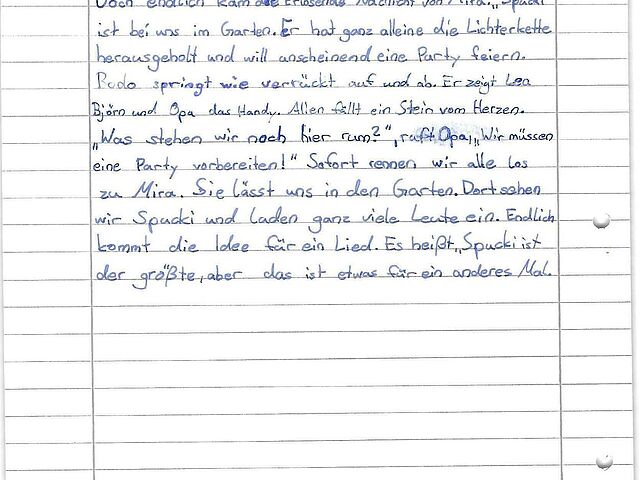 Doch endlich kam die erlösende Nachricht von Mira. „Spucki
ist bei uns im Garten. Er hat ganz alleine die Lichterkette
herausgeholt und will anscheinend eine Party feiern.
Podo springt wie verrückt auf und ab. Er zeigt Lea
Björn und Opa das Handy. Allen fällt ein Stein vom Herzen.
„Was stehen wir noch hier rum?“, ruft Opa, „Wir müssen
eine Party vorbereiten!“ Sofort rennen wir alle los
zu Mira. Sie lässt uns in den Garten. Dort sehen
wir Spucki und laden ganz viele Leute ein. Endlich
kommt die Idee für ein Lied. Es heißt „Spucki ist
der größte, aber das ist etwas für ein anderes Mal.